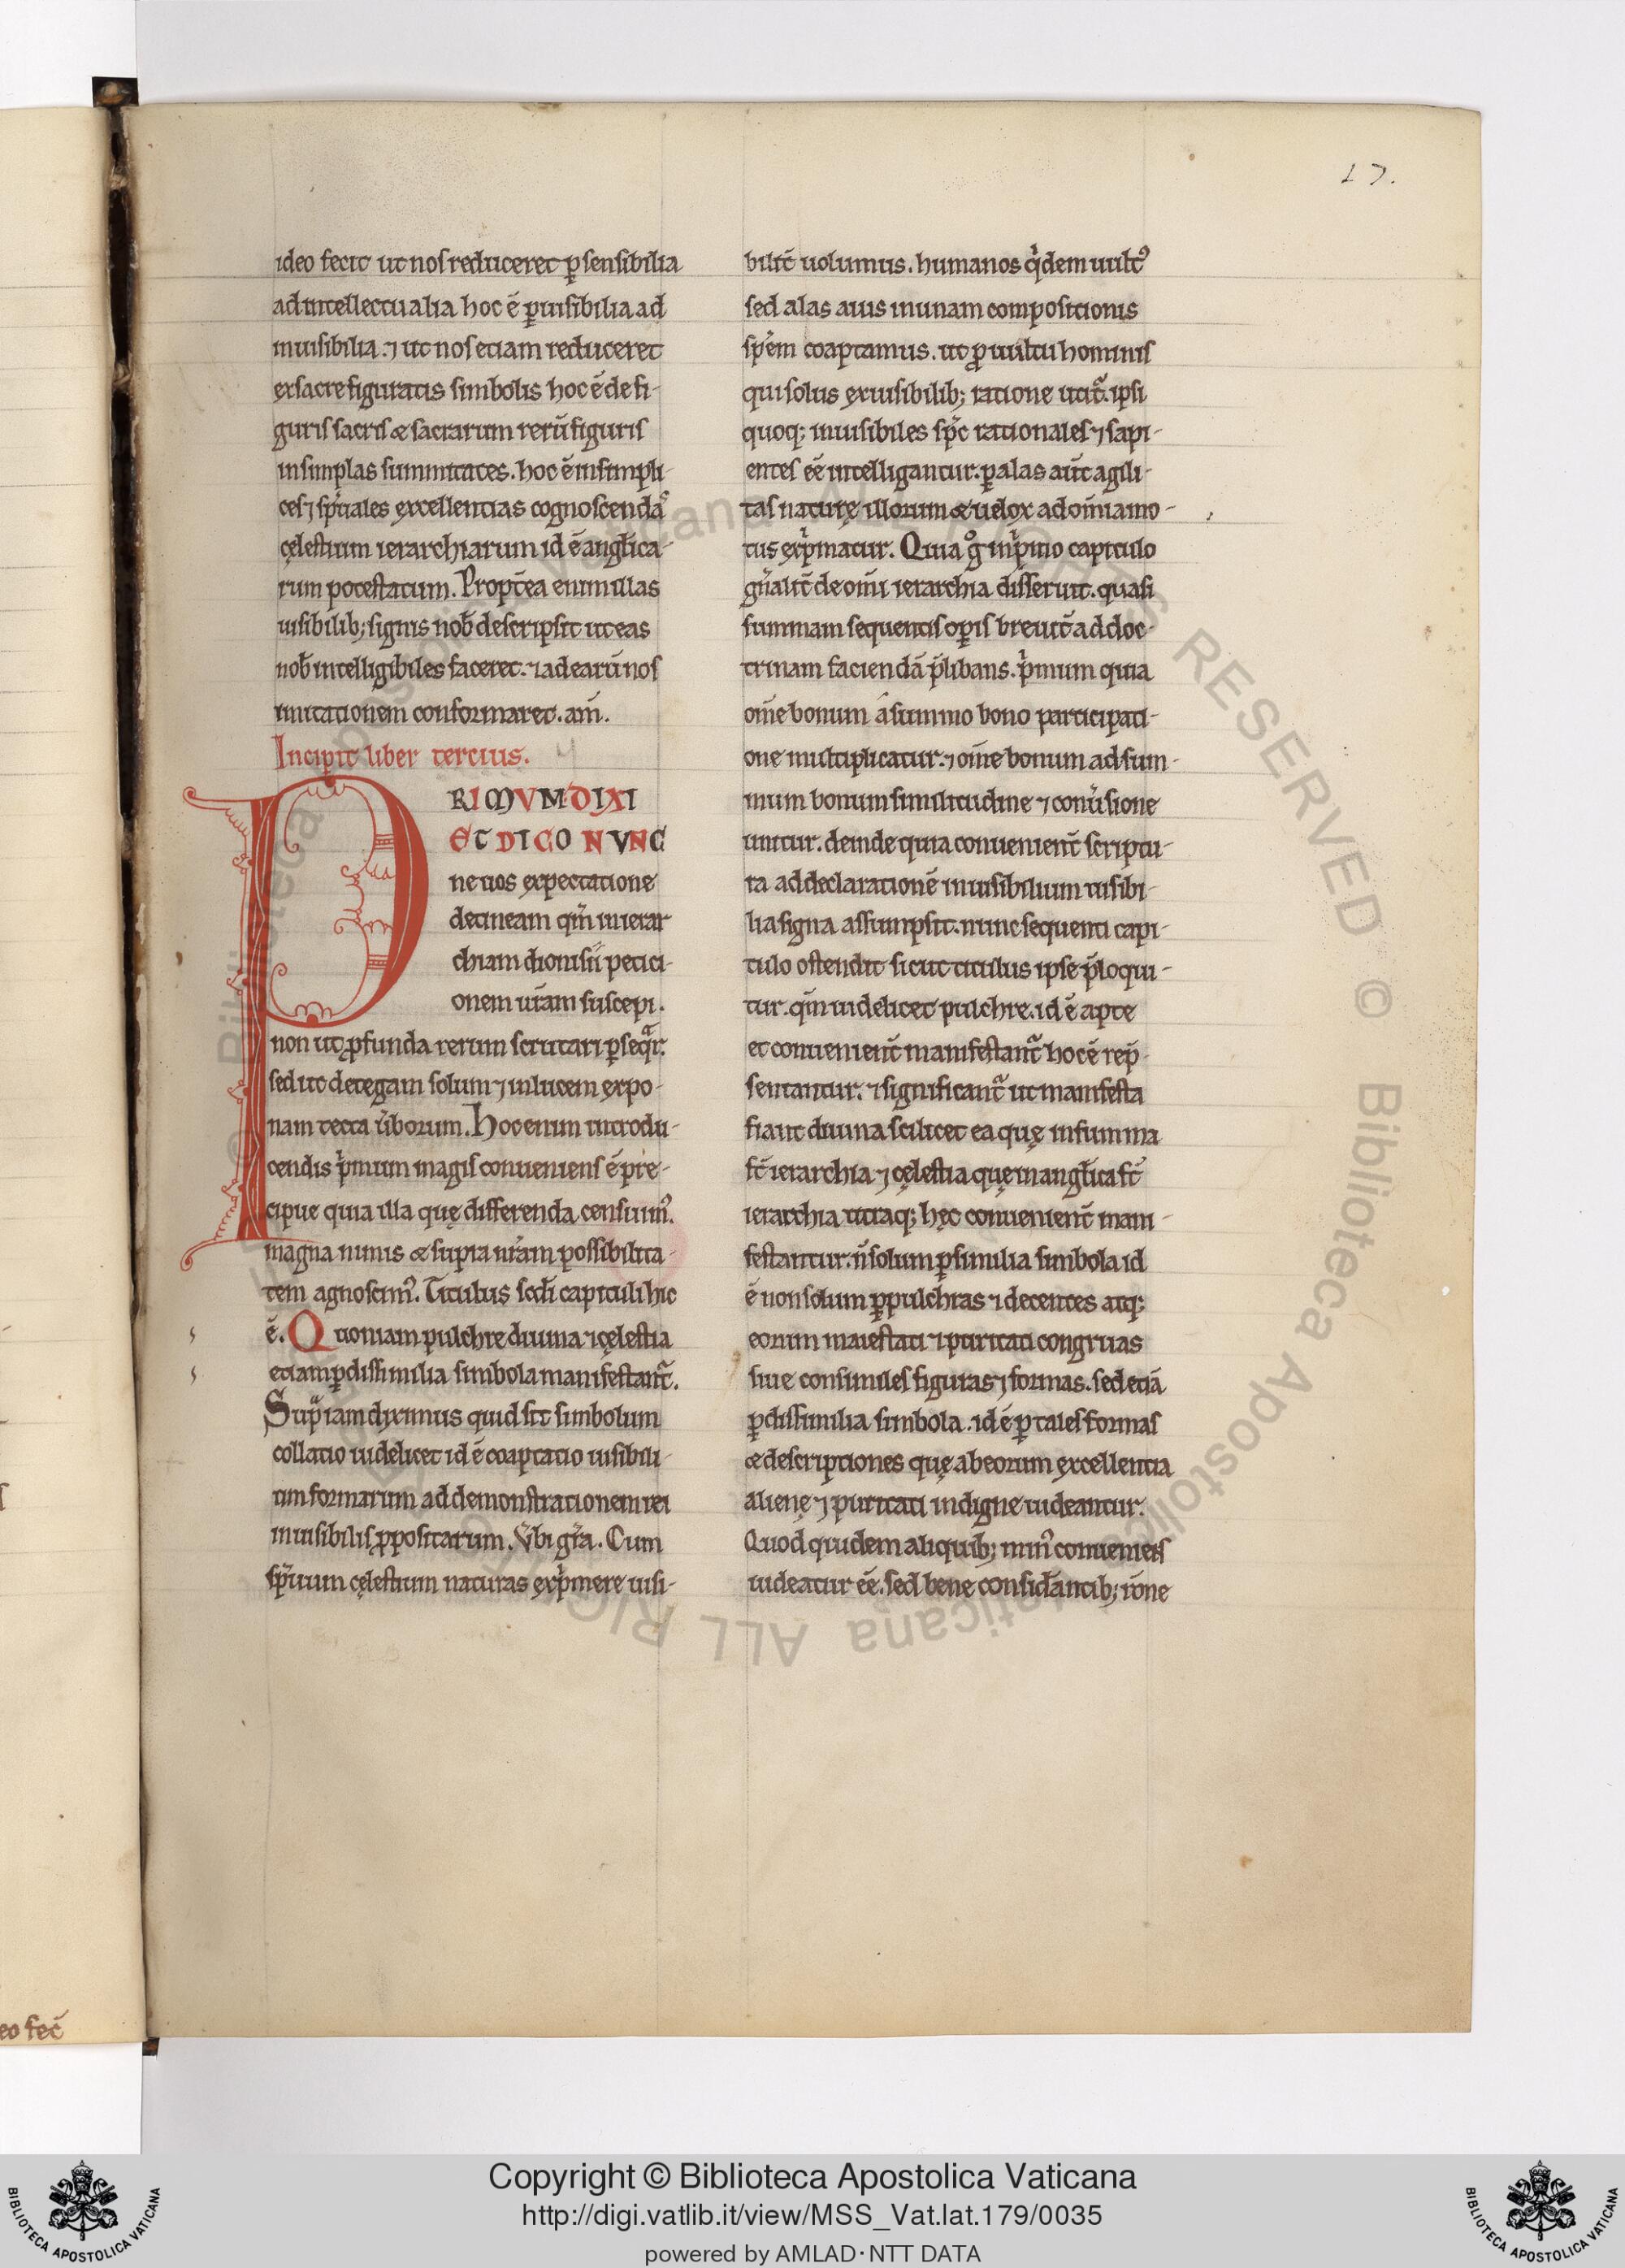 17.
ideo fecit ut nos reduceret ꝑ sensibilia
ad intellectualia hoc ē ꝑ uisibilia ad
inuisibilia. ⁊ ut nos etiam reduceret
ex sacre figuratis simbolis hoc ē de fi-
guris sacris & sacrarum rerū figuris
in simplas summitates. hoc ē in simpli-
ces ⁊ sp̄uales excellentias cognoscendaˢ
cęlestium ierarchiarum id ē anglica-
rum potestatum. Propt̄ea enim illas
uisibilib; signis nob̄ descripsit ut eas
nob̄ intelligibiles faceret. ⁊ ad earū nos
imitationem conformaret. am̄.
Incipit liber tercius.
PRIMVM DIXI
ET DICO NVNC
ne uos expectatione
detineam qm̄ in ierar
chiam dionisii petici-
onem ur̄am suscepi.
non ut ꝓfunda rerum scrutari ꝑseq̄r.
sed ut detegam solum ⁊ in lucem expo-
nam tecta ūborum. Hoc enim introdu-
cendis p̄mum magis conueniens ē pre-
cipue quia illa quę differenda censuimꝰ.
magna nimis & supra nr̄am possibilita-
tem agnoscimꝰ. Titulus scd̄i capituli hic
ē. Quoniam pulchre diuina ⁊ cęlestia
etiam ꝑ dissimilia simbola manifestant᷑.
Sup̄ iam diximus quid sit simbolum
collatio uidelicet id ē coaptatio uisibili-
um formarum ad demonstrationem rei
inuisibilis ꝓpositarum. Ūbi gr̄a. Cum
sp̄uum cęlestium naturas exp̄mere uisi-
bilit̄ uolumus. humanos q̄dem uult᷒
sed alas auis in unam compositionis
spēm coaptamus. ut ꝓ uultu hominis
qui solus ex uisibilib; ratione utit᷑. ipsi
quoq; inuisibiles sp̄c rationales ⁊ sapi-
entes eē intelligantur. ꝑ alas aūt agili-
tas naturę illorum & uelox ad omīa mo-
tus exp̄matur. Quia g° in p̄mo capitulo
gn̄alit̄ de omī ierarchia disseruit. quasi
summam sequentis oꝑis breuit̄ ad doc-
trinam faciendā p̄libans. p̄mum quia
om̄e bonum a summo bono participati-
one multiplicatur. ⁊ om̄e bonum ad sum-
mum bonum similitudine ⁊ conūsione
unitur. deinde quia conuenient̄ scriptu-
ra ad declarationē inuisibilium uisibi-
lia signa assumpsit. nunc sequenti capi-
tulo ostendit sicut titulus ipse p̄loqui-
tur. qm̄ uidelicet pulchre. id ē apte
et conuenient̄ manifestant᷑ hoc ē rep̄-
sentantur. ⁊ significant᷑ ut manifesta
fiant diuina scilicet ea quę in summa
st̄ ierarchia ⁊ cęlestia quę in anglica st̄
ierarchia utraq; hęc conuenient̄ mani-
festantur. n̄ solum ꝑ similia simbola id
ē non solum ꝑ pulchras ⁊ decentes atq;
eorum maiestati ⁊ puritati congruas
siue consimiles figuras ⁊ formas. sed etiā
ꝑ dissimilia simbola. id ē ꝑ tales formas
& descriptiones quę ab eorum excellentia
alienę ⁊ puritati indigne uideantur.
Quod quidem aliquib; minꝰ conueniens
uideatur eē. sed bene considāntib; rōne
eo fec̄
Copyright © Biblioteca Apostolica Vaticana
http://digi.vatlib.it/view/MSS_Vat.lat.179/0035
powered by AMLAD·NTT DATA
BIBLIOTECA APOSTOLICA VATICANA
BIBLIOTECA APOSTOLICA VATICANA